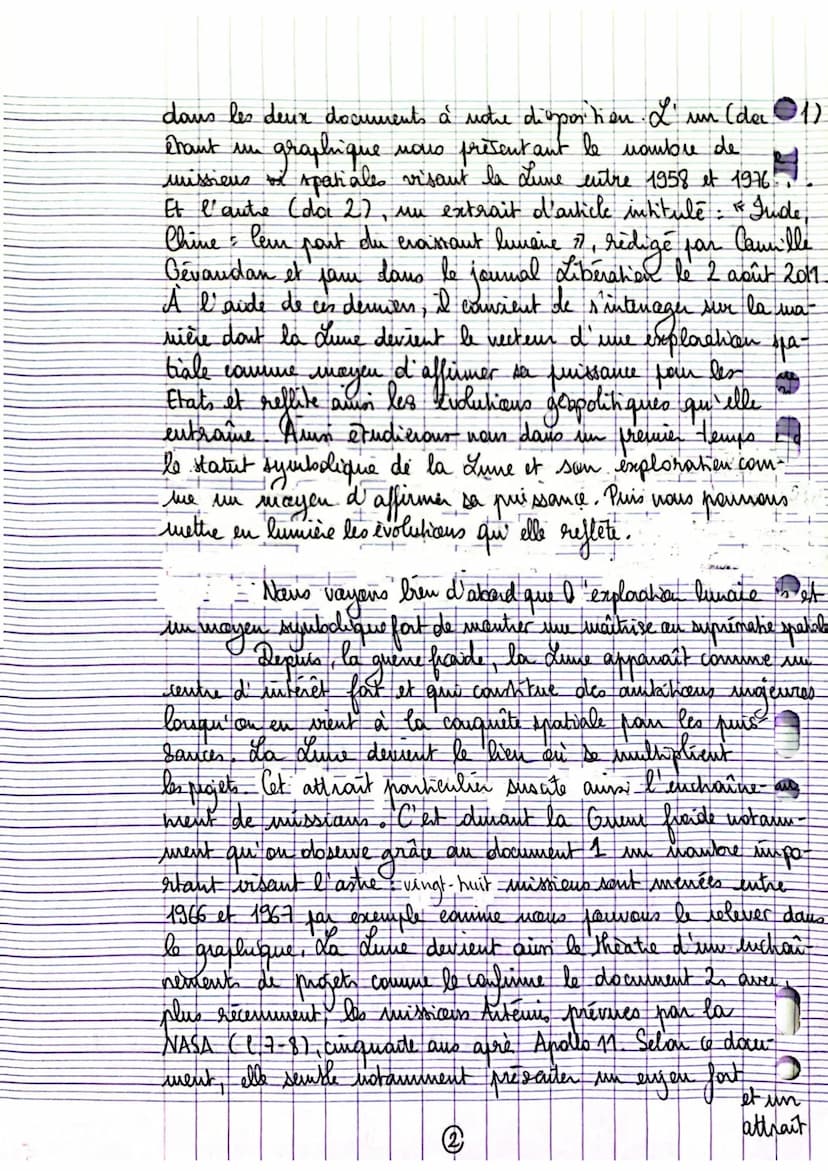 dans les deux documents à notre disposition. L'un (doc 1)
étant un graphique nous présentant le nombre de
missions spatiales visant la Lune entre 1958 et 1976.
Et l'autre (doc 2), un extrait d'article intitulé : "Inde,
Chine : leur part du croissant lunaire", rédigé par Camille
Gévaudan et paru dans le journal Libération le 2 août 2019.
À l'aide de ces derniers, il convient de s'interroger sur la ma-
nière dont la Lune devient le vecteur d'une exploration spa-
tiale comme moyen d'affirmer sa puissance pour les
Etats et reflète ainsi les évolutions géopolitiques qu'elle
entraîne. Ainsi étudierons nous dans un premier temps
le statut symbolique de la Lune et son exploration com-
me un moyen d'affirmer sa puissance. Puis nous pourrons
mettre en lumière les évolutions qu'elle reflète.
Nous voyons bien d'abord que l'exploration lunaire est
un moyen symbolique fort de montrer une maîtrise ou suprématie spatiale
Depuis, la guerre froide, la Lune apparaît comme un
centre d'intérêt fort et qui constitue des ambitions majeures
lorsqu'on en vient à la conquête spatiale pour les puis-
sances. La Lune devient le lieu où se multiplient
les projets. Cet attrait particulier suscite ainsi l'enchaîne-
ment de missions. C'est durant la Guerre froide notam-
ment qu'on observe grâce au document 1 un nombre impo-
rtant visant l'astre : vingt-huit missions sont menées entre
1966 et 1967 par exemple comme nous pouvons le relever dans
le graphique. La Lune devient ainsi le théâtre d'un enchaî-
nements de projets comme le confirme le document 2, avec,
plus récemment, les missions Artémis prévues par la
NASA (l.7-8), cinquante ans après Apollo 11. Selon ce docu-
ment, elle semble notamment présenter un enjeu fort
et un
attrait
2